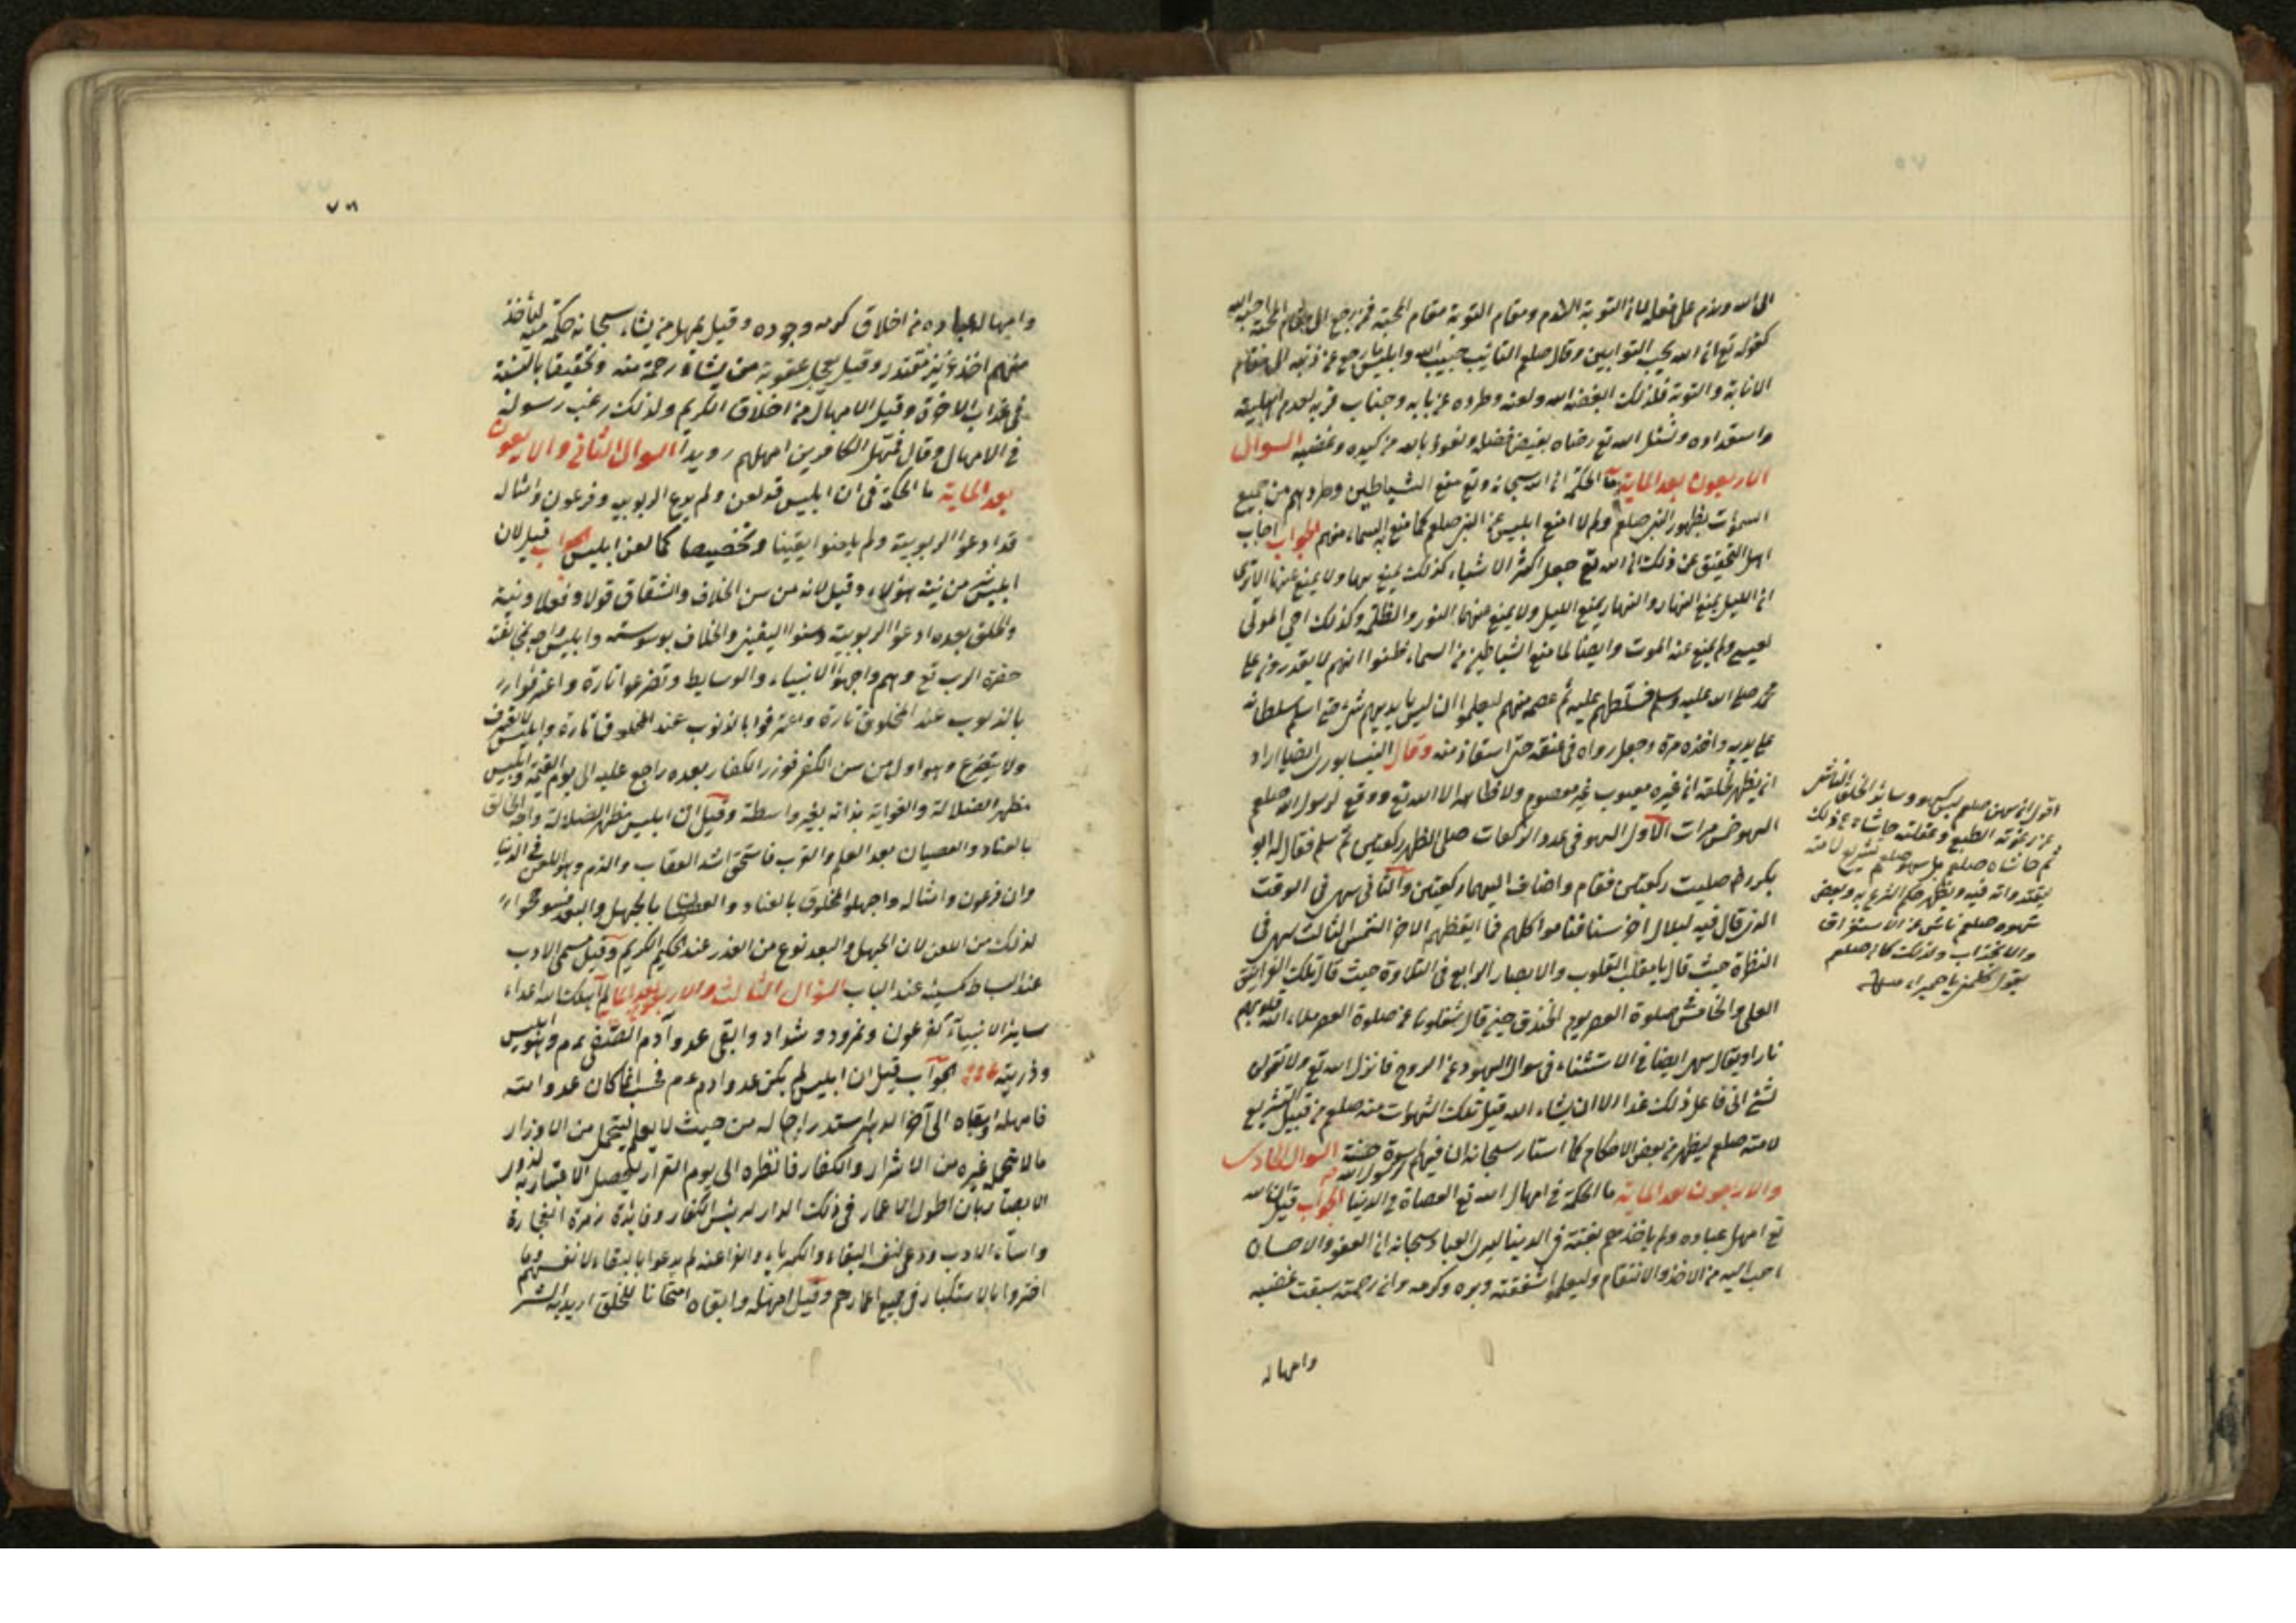 الى الله وندم على فعله لان التوبة الندم ومقام التوبة مقام المحبة فمن رجع الى مقام المحبة احبه الله
كقوله تع ان الله يحب التوابين وقال صلعم التائب حبيب الله وابليس ما رجع عن ذنبه الى مقام
الانابة والتوبة فلذلك ابغضه الله ولعنه وطرده عن بابه وجناب قربه لعدم اهليته
واستعداده ونسئل الله تع رضاه بفيض فضله ونعوذ بالله من كيده وغضبه السوال
الاربعون بعد الماية ما الحكمة ان الله سبحانه وتع منع الشياطين وطردهم من جميع
السموات بظهور النبى صلعم ولم لا امنع ابليس عن النبى صلعم كما منع السماء منهم الجواب اجاب
اهل التحقيق عن ذلك ان الله تع جعل اكثر الاشياء كذلك يمنع بها ولا يمنع عنها الا ترى
ان الليل يمنع النهار والنهار يمنع الليل ولا يمنع منهما النور والظلمة وكذلك احى الموتى
لعيسى ولم يمنع عنه الموت وايضا لما منع الشياطين من السماء ظنوا انهم لا يقدرون على
محمد صلى الله عليه وسلم فسلطهم عليه ثم عصمه منهم ليعلموا ان ليس بايديهم شئ حتى اسلم سلطانه
على يديه واخذه مرة وجعل رداه فى عنقه حتى استغاذ منه وقال النيسابورى ايضا اراد
ان يظهر لخلقه ان غيره معيوب غير معصوم ولا الا الله تع ووقع لرسول الله صلعم
السهو خمس مرات الاول السهو فى عدد الركعات صلى الظهر ركعتين ثم سلم فقال له ابو
بكر رضـ صليت ركعتين فقام واضاف اليهما ركعتين والثانى سهى فى الوقت
الذى قال فيه لبلال احرسنا فناموا كلهم فما ايقظهم الا حر الشمس الثالث سهى فى
النظرة حيث قال يا مقلب القلوب والابصار الرابع فى التلاوة حيث قال تلك الغرانيق
العلى والخامس صلوة العصر يوم الخندق حين قال شغلونا عن صلوة العصر ملاء الله قلوبهم
نارا ويقال سهى ايضا فى الاستثناء فى سوال اليهود عن الروح فانزل الله تع ولا تقولن
لشئ انى فاعل ذلك غدا الا ان يشاء الله قيل تلك السهوات منه صلعم من قبيل التشريع
لامته صلعم ليظهر من بعض الاحكام كما اشار سبحانه ان فيهم اسوة حسنة السوال الحادى
رسول الله
والاربعون بعد الماية ما الحكمة فى امهال الله تع العصاة فى الدنيا الجواب قيل ان الله
تع امهل عباده ولم ياخذهم بغتة فى الدنيا ليرى العباد سبحانه ان العفو والاحسان
احب اليه من الاخذ والانتقام وليعلموا شفقته وبره وكرمه وان رحمته سبقت غضبه
وامهاله
اقول ان سهوه صلعم ليس كسهو سائر الخلق الناشى
عن رعونة الطبع وغفلته حاشاه عن ذلك
ثم حاشاه صلعم بل سهوه صلعم تشريع لامته
ليقتدوا به فيه ويظهر حكم الشرع به وبعض
سهوه صلعم ناشى عن الاستغراق
والانجذاب ولذلك كان صلعم
يقول كلمينى يا حميراء
٧٥
٧٦
٧٧
وامهاله عباده من اخلاق كرمه وجوده وقيل يمهل من يشاء سبحانه حكمة منه ليأخذ
منهم اخذ عزيز مقتدر وقيل يعجل عقوبة من يشاء رحمة منه وتخفيفا بالنسبة
فى عذاب الاخرة وقيل الامهال من اخلاق الكريم ولذلك رغب رسوله
فى الامهال وقال فمهل الكافرين امهلهم رويدا السوال الثانى والاربعون
بعد الماية ما الحكمة فى ان ابليس قد لعن ولم يدع الربوبية وفرعون وامثاله
قد ادعوا الربوبية ولم يلعنوا يقينا وتخصيصا كما لعن ابليس الجواب قيل لان
ابليس شر من نية هؤلاء وقيل لانه من سن الخلاف والشقاق قولا وفعلا ونية
والخلق بعده ادعوا الربوبية وسنوا والخلاف بوسوسته وابليس واجه بمخالفته
حضرة الرب تع وهم واجهوا الانبياء والوسايط وتضرعوا تارة واعترفوا
بالذنوب عند المخلوق تارة واعترفوا بالذنوب عند المخلوق تارة وابليس لا يعترف
ولا يتضرع وهو اول من سن الكفر فوزر الكفار بعده راجع عليه الى يوم القيمة وابليس
مظهر الضلالة والغواية بذاته بغير واسطة وقيل ان ابليس مظهر الضلالة واجه الخالق
بالعناد والعصيان بعد العلم والقرب فاستحق اشد العقاب والذم وهو اللعن فى الدنيا
وان فرعون وامثاله واجهوا المخلوق بالعناد والعصيان بالجهل والبعد
لذلك من اللعن لان الجهل والبعد نوع من العذر عند الحكيم الكريم وقيل مسئ الادب
عند البساط كمسيئه عند الباب السؤال الثالث والاربعون بعد الماية لم اهلك الله اعداء
سائر الانبياء كفرعون ونمرود وشداد وابقى عدو آدم الصفى عم وهو ابليس
وذريته الجواب قيل ان ابليس لم يكن عدو ادم عم فحسب انما كان عدو امته
فامهله وبقاه الى آخر الدهر استدراجا له من حيث لا يعلم ليتحمل من الاوزار
ما لا يتحمل غيره من الاشرار والكفار فانظره الى يوم القرار ليحصل الاعتبار به لذوى
الابصار بان اطول الاعمار فى ذلك الدار لرئيس الكفار وقائدة زمرة الفجارة
واساء الادب ودعى لنفسه البقاء والكبرياء والفراعنة لم يدعوا بالبقاء لانفسهم وما
اغتروا بالاستكبار فى جميع اعمارهم وقيل امهله وابقاه امتحانا للخلق